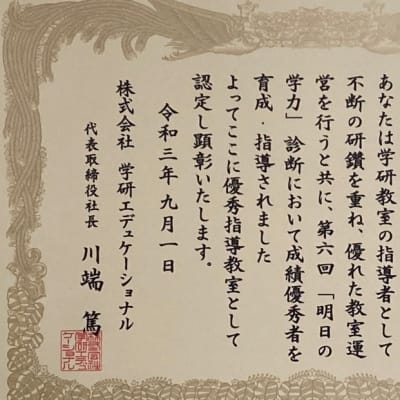 あなたは学研教室の指導者として
不断の研鑽を重ね、優れた教室運
営を行うと共に、第六回「明日の
学力」診断において成績優秀者を
育成・指導されました
よってここに優秀指導教室として
認定し顕彰いたします。
令和三年九月一日
株式会社 学研エデュケーショナル
代表取締役社長 川端 篤